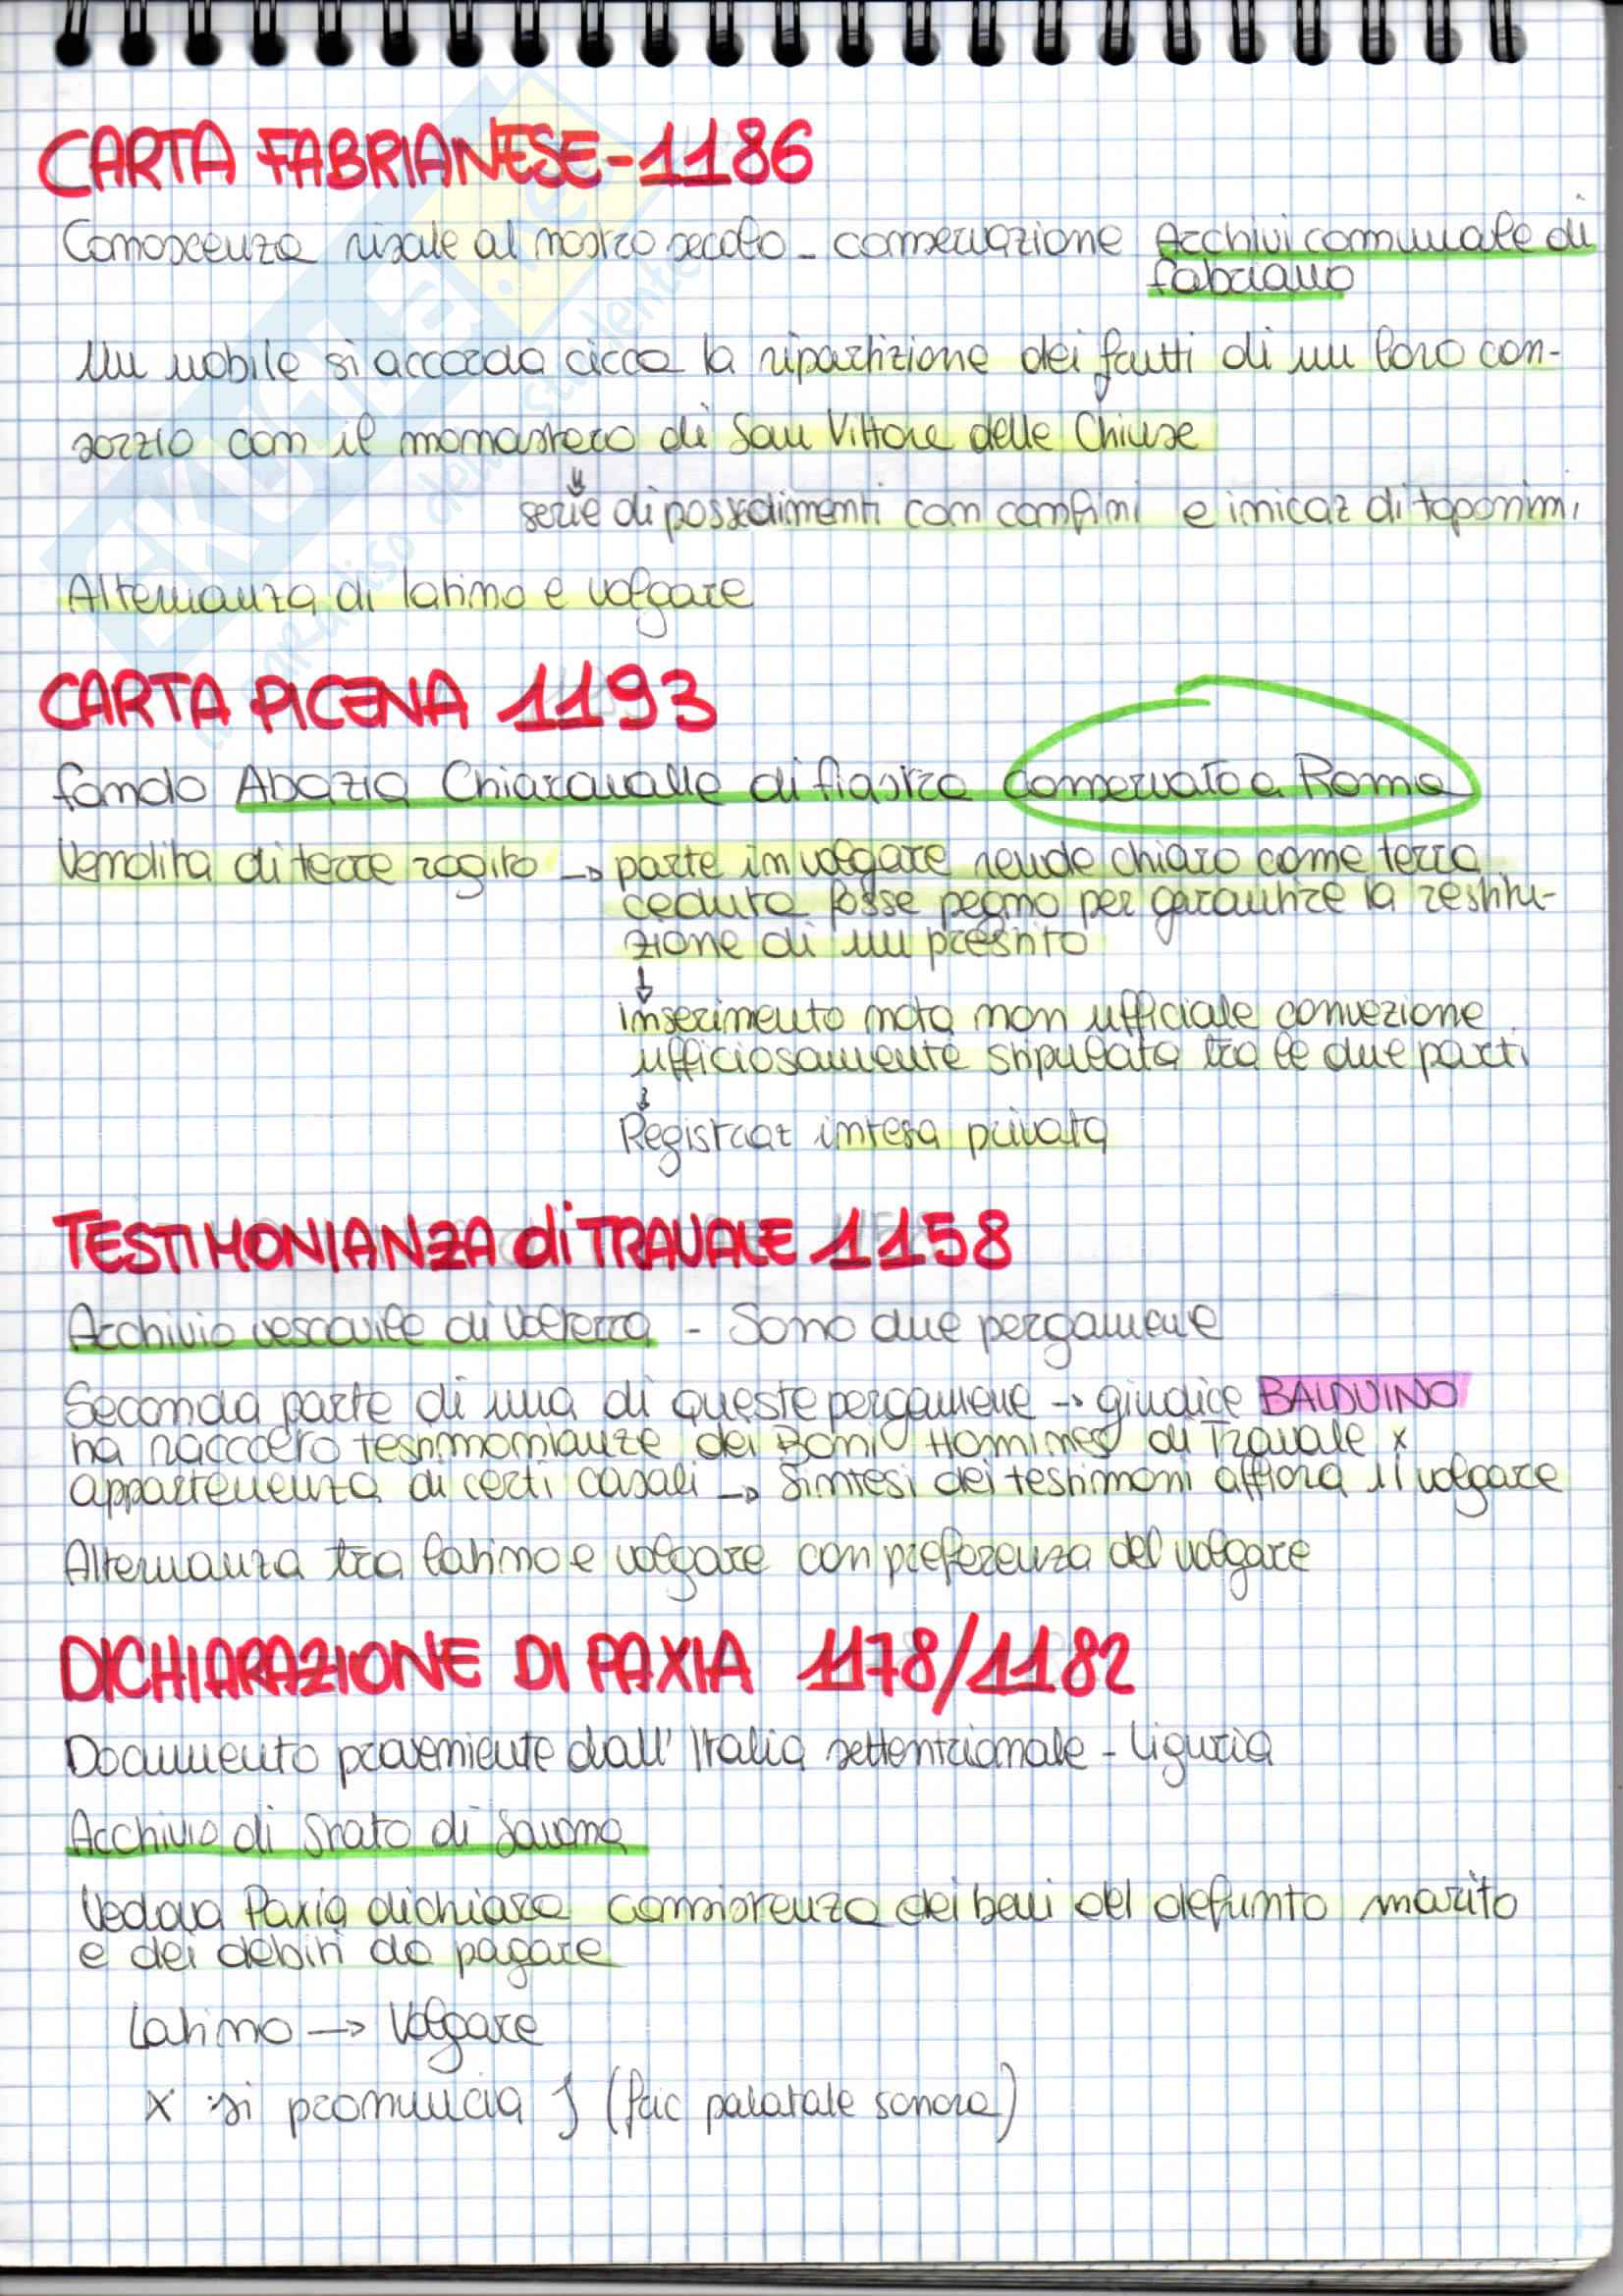 CARTA FABRIANESE-1186
Conoscenza risale al nostro secolo - conservazione Archivi comunale di
Fabriano
Un nobile si accorda circa la ripartizione dei frutti di un loro con-
sorzio con il monastero di San Vittore delle Chiuse
↓
serie di possedimenti con confini e inicaz di toponimi
Alternanza di latino e volgare
CARTA PICENA 1193
fondo Abazia Chiaravalle di fiastra conservato a Roma
Vendita di terre rogito → parte in volgare rende chiaro come terra
ceduta fosse pegno per garantire la restitu-
zione di un prestito
↓
inserimento nota non ufficiale convezione
ufficiosamente stipulata tra le due parti
↓
Registraz intesa privata
TESTIMONIANZA di TRAVALE 1158
Archivio vescovile di Volterra - Sono due pergamene
Seconda parte di una di queste pergamene → giudice BALDUINO
ha raccolto testimonianze dei Boni Homines di Travale x
appartenenza di certi casali → Sintesi dei testimoni affiora il volgare
Alternanza tra latino e volgare con preferenza del volgare
DICHIARAZIONE DI PAXIA 1178/1182
Documento proveniente dall'Italia settentrionale - Liguria
Archivio di Stato di Savona
Vedova Paxia dichiara consistenza dei beni del defunto marito
e dei debiti da pagare
Latino → Volgare
x si pronuncia ʒ (fric palatale sonora)
SKUOLA.net
il paradiso dello studente